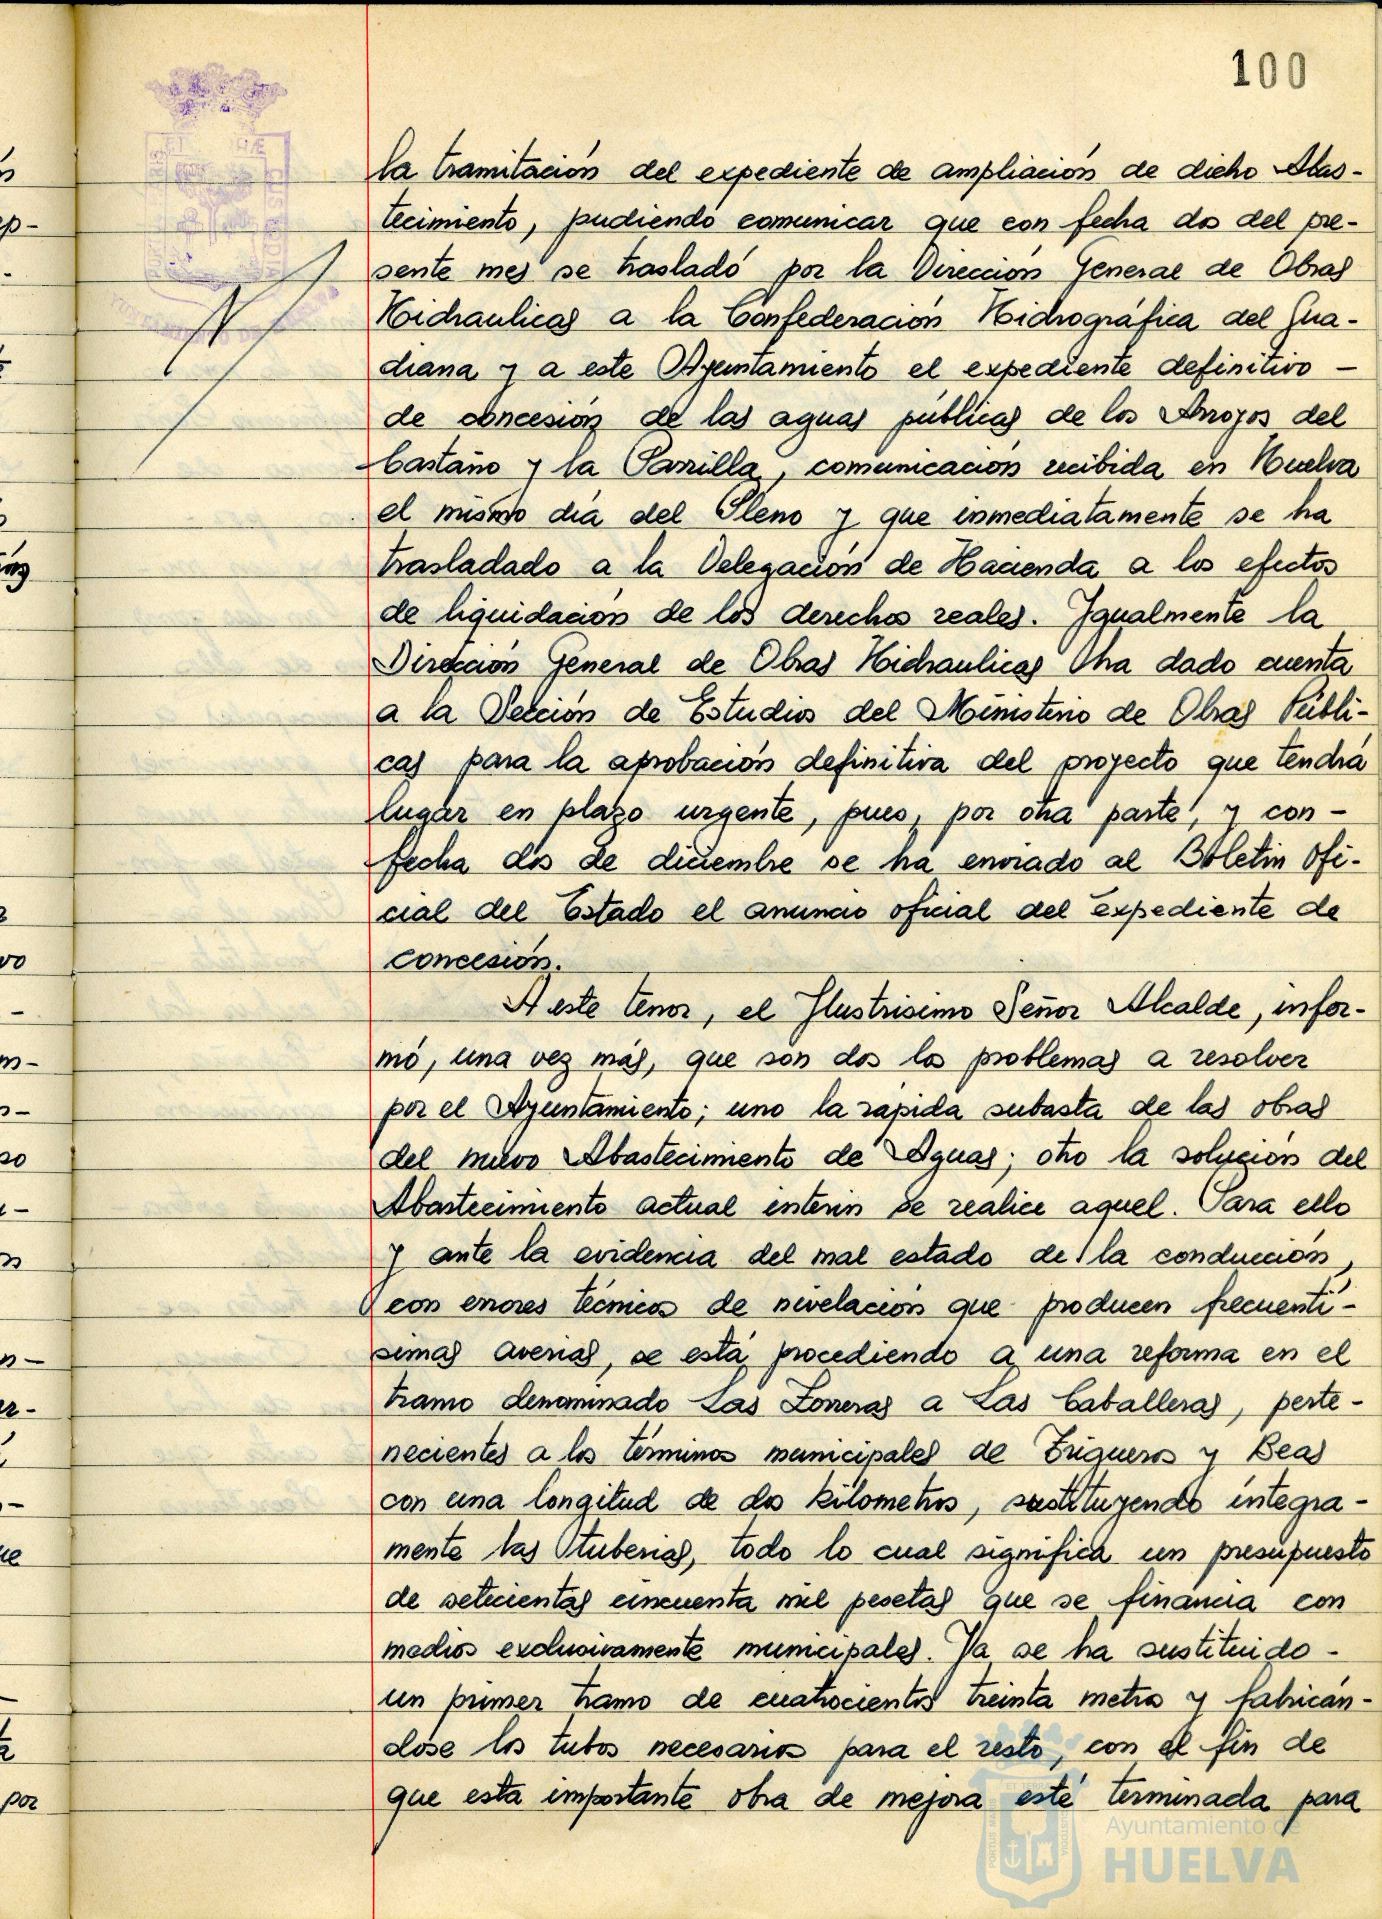 100
la tramitación del expediente de ampliación de dicho Abas-
tecimiento, pudiendo comunicar que con fecha dos del pre-
sente mes se trasladó por la Dirección General de Obras
Hidraulicas a la Confederación Hidrográfica del Gua-
diana y a este Ayuntamiento el expediente definitivo -
de concesión de las aguas públicas de los Arroyos del
Castaño y la Parrilla, comunicación recibida en Huelva
el mismo día del Pleno y que inmediatamente se ha
trasladado a la Delegación de Hacienda a los efectos
de liquidación de los derechos reales. Igualmente la
Dirección General de Obras Hidraulicas ha dado cuenta
a la Sección de Estudios del Ministerio de Obras Públi-
cas para la aprobación definitiva del proyecto que tendrá
lugar en plazo urgente, pues, por otra parte, y con -
fecha dos de diciembre se ha enviado al Boletin Ofi-
cial del Estado el anuncio oficial del expediente de
concesión.
A este tenor, el Ilustrisimo Señor Alcalde, infor-
mó, una vez más, que son dos los problemas a resolver
por el Ayuntamiento; uno la rápida subasta de las obras
del nuevo Abastecimiento de Aguas; otro la solución del
Abastecimiento actual interin se realice aquel. Para ello
y ante la evidencia del mal estado de la conducción,
con errores técnicos de nivelación que producen frecuenti-
simas averias, se está procediendo a una reforma en el
tramo denominado Las Zorreras a Las Caballeras, perte-
necientes a los términos municipales de Trigueros y Beas
con una longitud de dos kilometros, sustituyendo integra-
mente las tuberias, todo lo cual significa un presupuesto
de setecientas cincuenta mil pesetas que se financia con
medios exclusivamente municipales. Ya se ha sustituido -
un primer tramo de cuatrocientos treinta metros y fabricán-
dose los tubos necesarios para el resto, con el fin de
que esta importante obra de mejora esté terminada para
Ayuntamiento de
HUELVA